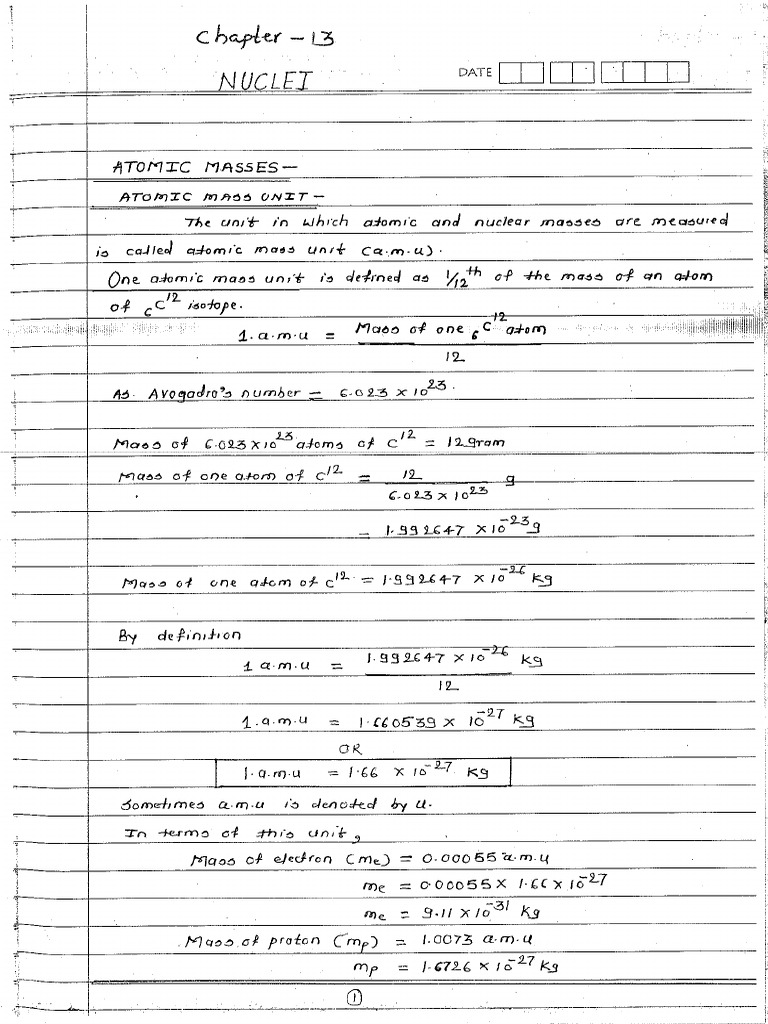 Chapter - 13
NUCLEI
DATE
ATOMIC MASSES—
ATOMIC MASS UNIT -
The unit in which atomic and nuclear masses are measured
is called atomic mass unit (a.m.u).
One atomic mass unit is defined as 1/12th of the mass of an atom
of ₆C¹² isotope.
1.a.m.u = Mass of one ₆C¹² atom
12
As Avogadro's number = 6.023 × 10²³.
Mass of 6.023×10²³ atoms of C¹² = 12gram
Mass of one atom of C¹² = 12 g
6.023 × 10²³
= 1.992647 × 10⁻²³g
Mass of one atom of C¹² = 1.992647 × 10⁻²⁶ kg
By definition
1 a.m.u = 1.992647 × 10⁻²⁶ kg
12
1.a.m.u = 1.660539 × 10⁻²⁷ kg
OR
1.a.m.u = 1.66 × 10⁻²⁷ kg
Sometimes a.m.u is denoted by u.
In terms of this unit,
Mass of electron (me) = 0.00055 a.m.u
me = 0.00055 × 1.66 × 10⁻²⁷
me = 9.11 × 10⁻³¹ kg
Mass of proton (mp) = 1.0073 a.m.u
mp = 1.6726 × 10⁻²⁷ kg
1